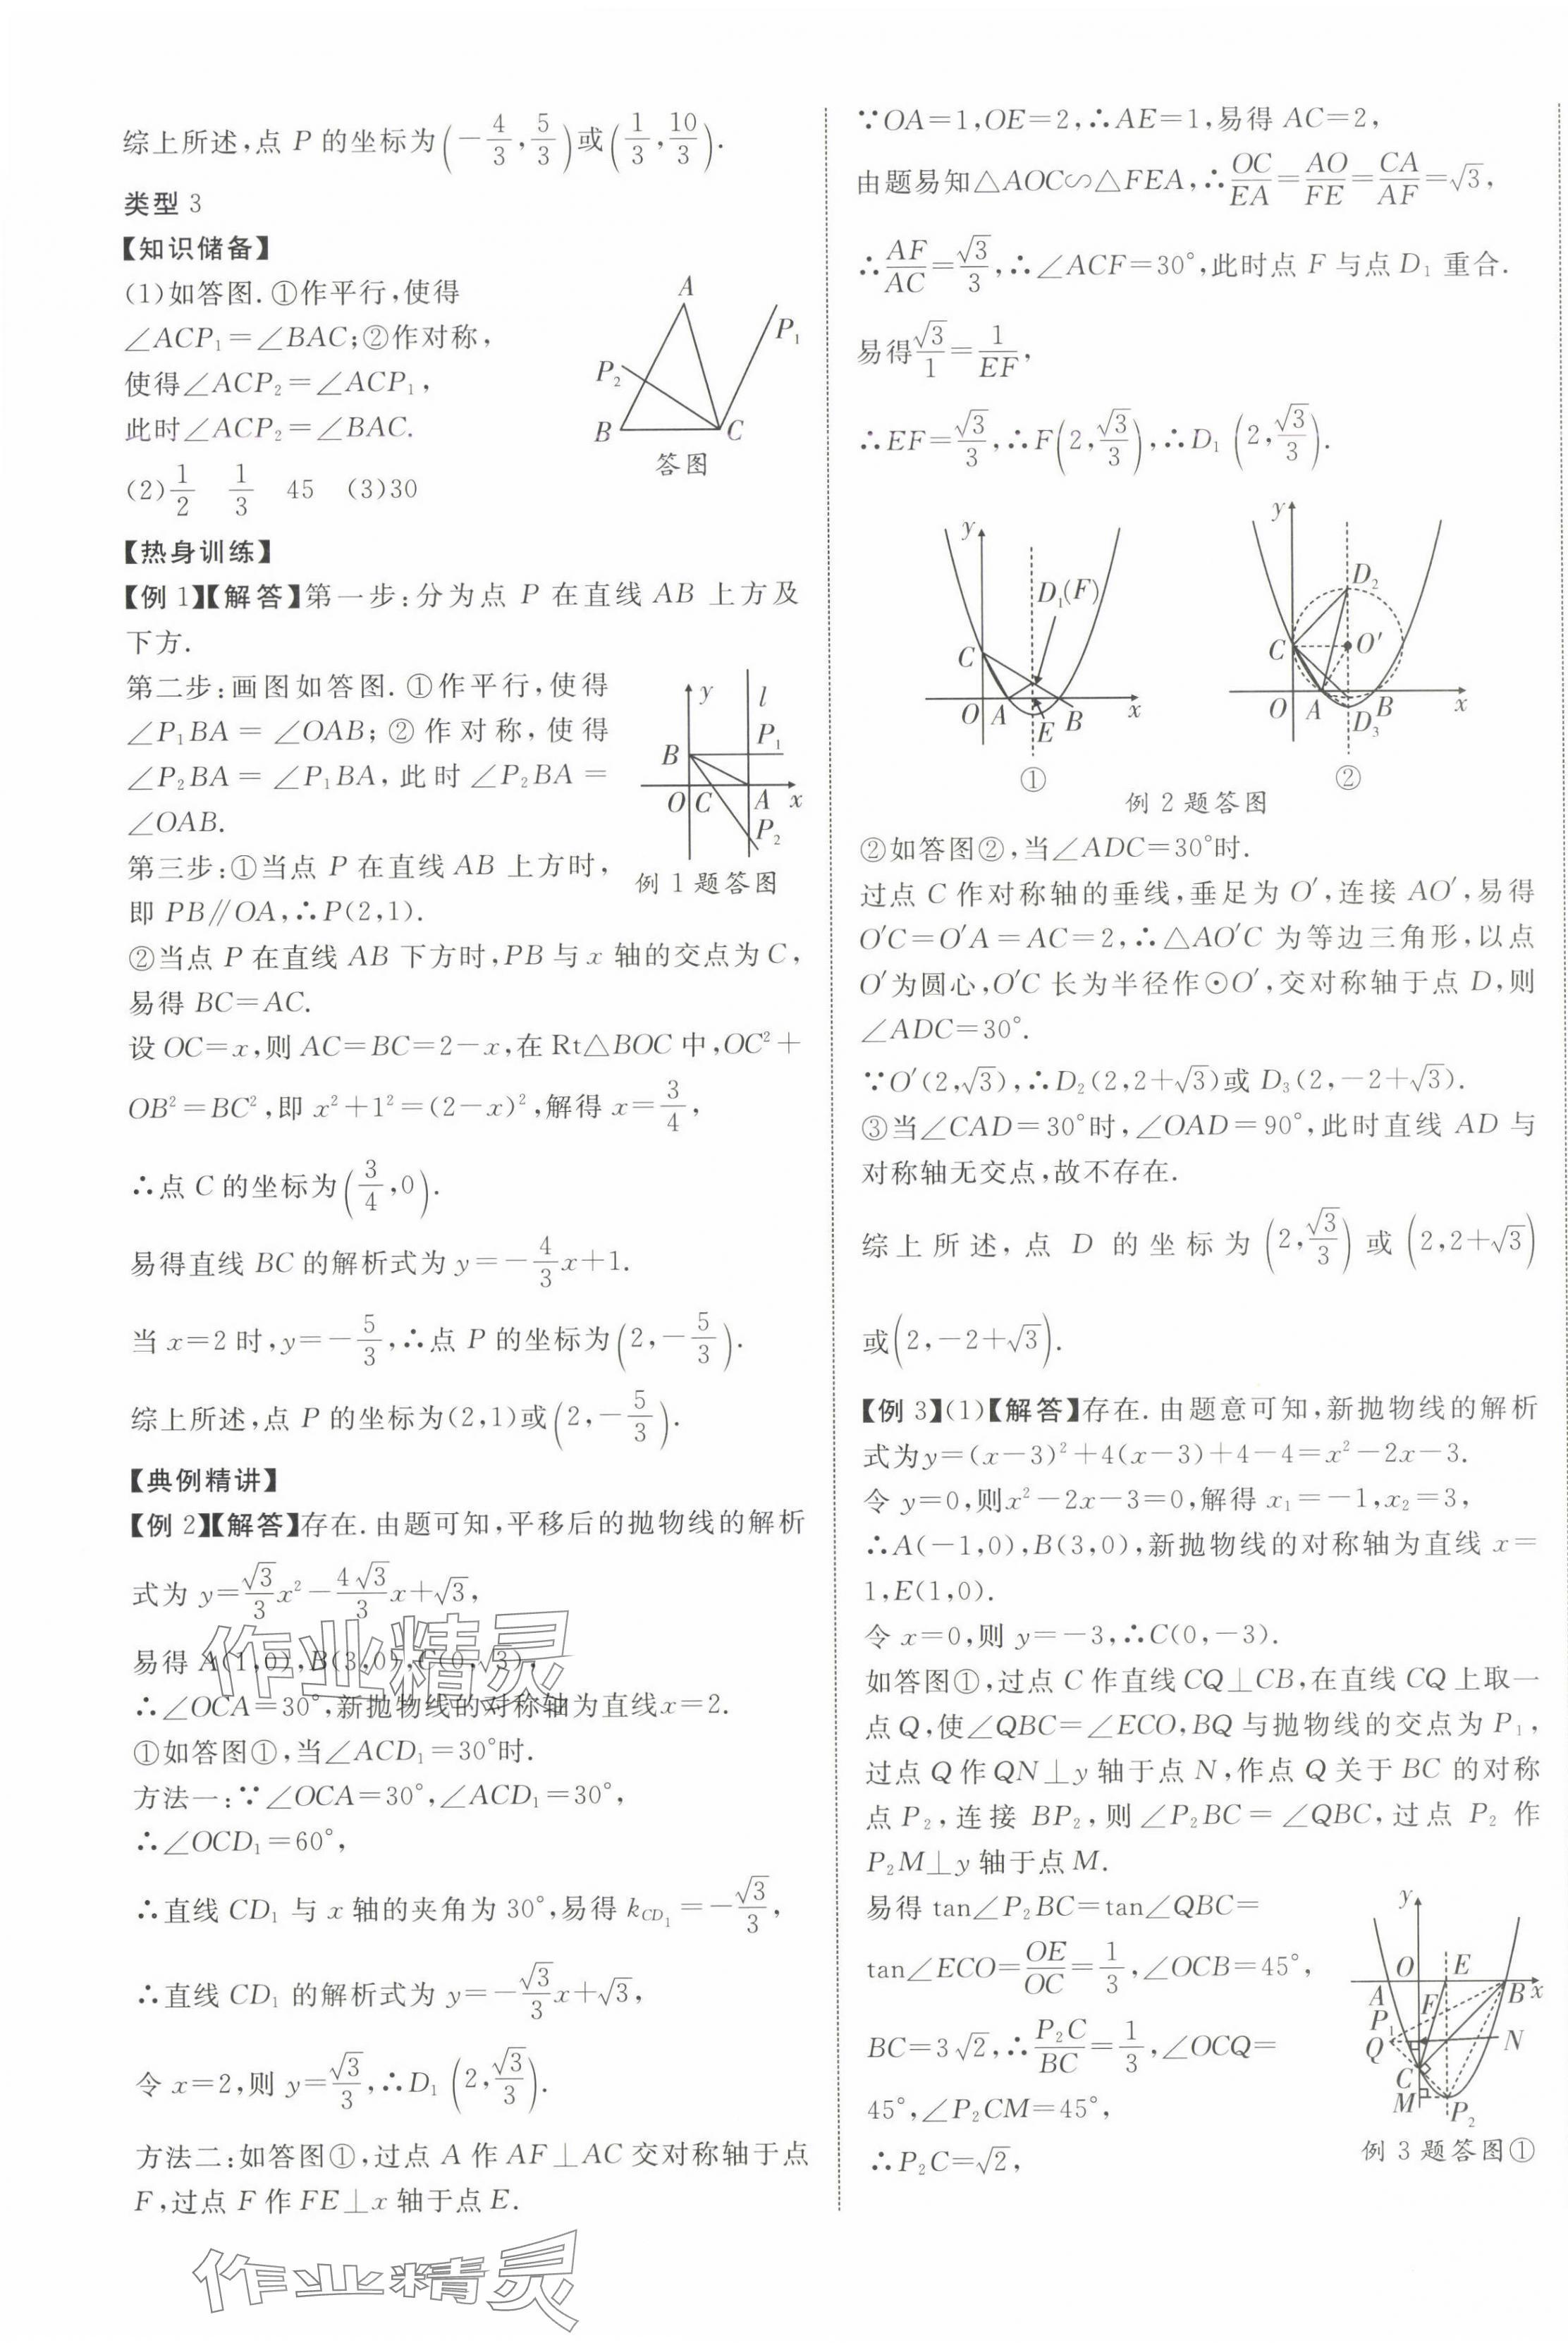 综上所述,点 P 的坐标为(-4/3,5/3)或(1/3,10/3).
类型 3
【知识储备】
(1)如答图.①作平行,使得
∠ACP₁=∠BAC;②作对称,
使得∠ACP₂=∠ACP₁,
此时∠ACP₂=∠BAC.
(2)1/2 1/3 45 (3)30
A
P₁
P₂
B
C
答图
【热身训练】
【例 1】【解答】第一步:分为点 P 在直线 AB 上方及
下方.
第二步:画图如答图.①作平行,使得
∠P₁BA=∠OAB;②作对称,使得
∠P₂BA=∠P₁BA,此时∠P₂BA=
∠OAB.
第三步:①当点 P 在直线 AB 上方时,
即 PB∥OA,∴P(2,1).
y
l
B
P₁
O
C
A
x
P₂
例 1 题答图
②当点 P 在直线 AB 下方时,PB 与 x 轴的交点为 C,
易得 BC=AC.
设 OC=x,则 AC=BC=2-x,在 Rt△BOC 中,OC²+
OB²=BC²,即 x²+1²=(2-x)²,解得 x=3/4,
∴点 C 的坐标为(3/4,0).
易得直线 BC 的解析式为 y=-4/3x+1.
当 x=2 时,y=-5/3,∴点 P 的坐标为(2,-5/3).
综上所述,点 P 的坐标为(2,1)或(2,-5/3).
【典例精讲】
【例 2】【解答】存在.由题可知,平移后的抛物线的解析
式为 y=√3/3x²-4√3/3x+√3,
易得 A(1,0),B(3,0),C(0,√3),
∴∠OCA=30°,新抛物线的对称轴为直线x=2.
①如答图①,当∠ACD₁=30°时.
方法一:∵∠OCA=30°,∠ACD₁=30°,
∴∠OCD₁=60°,
∴直线 CD₁ 与 x 轴的夹角为 30°,易得 k_CD₁=-√3/3,
∴直线 CD₁ 的解析式为 y=-√3/3x+√3,
令 x=2,则 y=√3/3,∴D₁(2,√3/3).
方法二:如答图①,过点 A 作 AF⊥AC 交对称轴于点
F,过点 F 作 FE⊥x 轴于点 E.
作业精灵
作业精灵
∵OA=1,OE=2,∴AE=1,易得 AC=2,
由题易知△AOC∽△FEA,∴OC/EA=AO/FE=CA/AF=√3,
∴AF/AC=√3/3,∴∠ACF=30°,此时点 F 与点 D₁ 重合.
易得√3/1=1/EF,
∴EF=√3/3,∴F(2,√3/3),∴D₁(2,√3/3).
y
D₁(F)
C
O
A
E
B
x
①
y
D₂
C
O′
O
A
B
D₃
x
②
例 2 题答图
②如答图②,当∠ADC=30°时.
过点 C 作对称轴的垂线,垂足为 O′,连接 AO′,易得
O′C=O′A=AC=2,∴△AO′C 为等边三角形,以点
O′为圆心,O′C 长为半径作⊙O′,交对称轴于点 D,则
∠ADC=30°.
∵O′(2,√3),∴D₂(2,2+√3)或 D₃(2,-2+√3).
③当∠CAD=30°时,∠OAD=90°,此时直线 AD 与
对称轴无交点,故不存在.
综上所述,点 D 的坐标为(2,√3/3)或(2,2+√3)
或(2,-2+√3).
【例 3】(1)【解答】存在.由题意可知,新抛物线的解析
式为y=(x-3)²+4(x-3)+4-4=x²-2x-3.
令 y=0,则x²-2x-3=0,解得 x₁=-1,x₂=3,
∴A(-1,0),B(3,0),新抛物线的对称轴为直线 x=
1,E(1,0).
令 x=0,则 y=-3,∴C(0,-3).
如答图①,过点 C 作直线CQ⊥CB,在直线 CQ 上取一
点 Q,使∠QBC=∠ECO,BQ 与抛物线的交点为 P₁,
过点 Q 作 QN⊥y 轴于点 N,作点 Q 关于 BC 的对称
点 P₂,连接 BP₂,则∠P₂BC=∠QBC,过点 P₂ 作
P₂M⊥y 轴于点 M.
易得 tan∠P₂BC=tan∠QBC=
tan∠ECO=OE/OC=1/3,∠OCB=45°,
BC=3√2,∴P₂C/BC=1/3,∠OCQ=
45°,∠P₂CM=45°,
∴P₂C=√2,
y
O
E
A
B
x
F
P₁
Q
N
C
M
P₂
例 3 题答图①